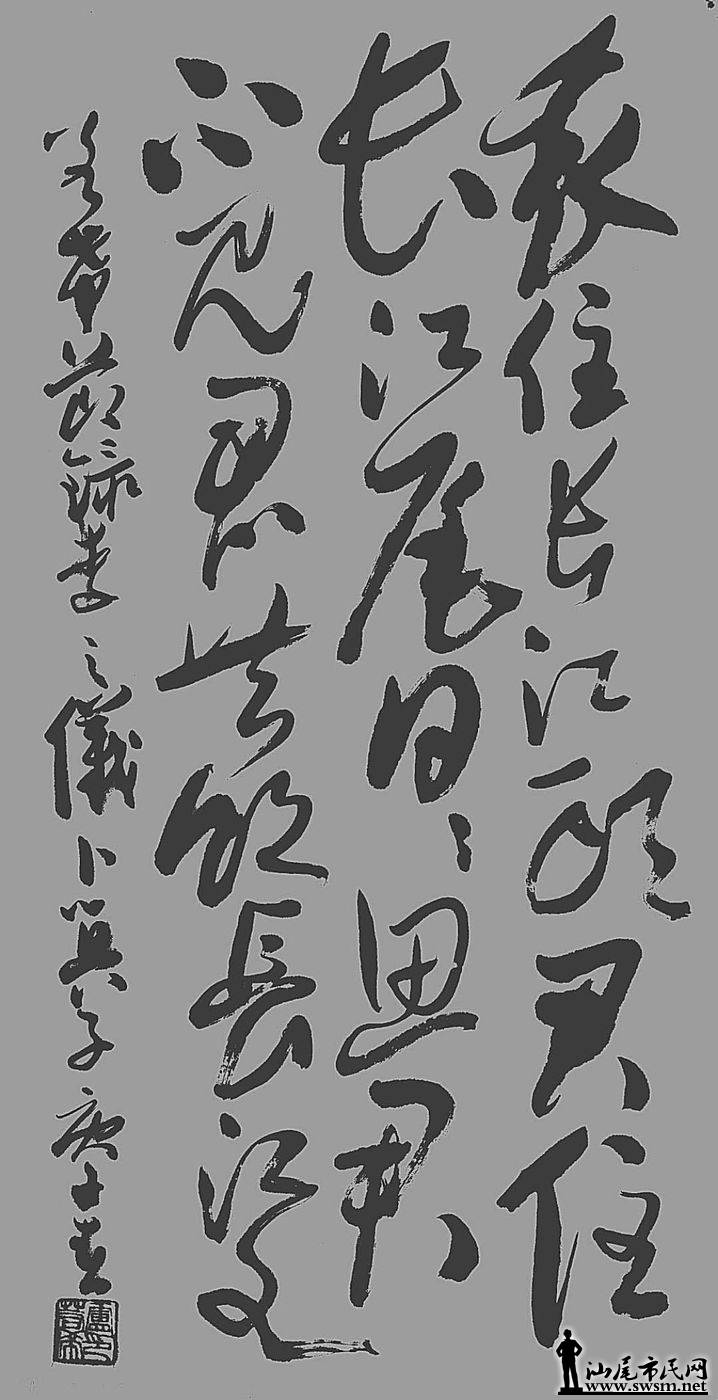 我住长江头君住
长江尾日〻思君
不见君共饮長江水
若希节録李之儀卜算子庚春
汕尾市民网
www.swsm.net